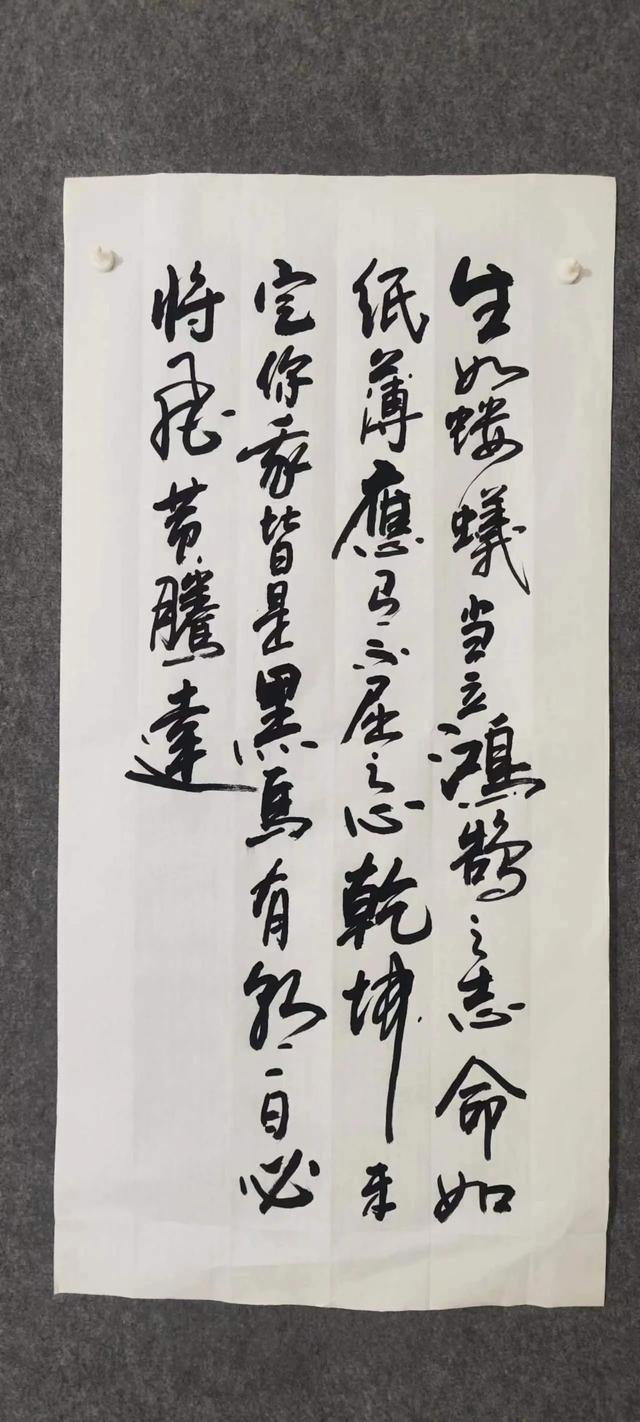 生如蝼蟻当立鴻鹄之志命如
纸薄應有不屈之心乾坤未
定你我皆是黑馬有朝一日必
将飛黄騰達